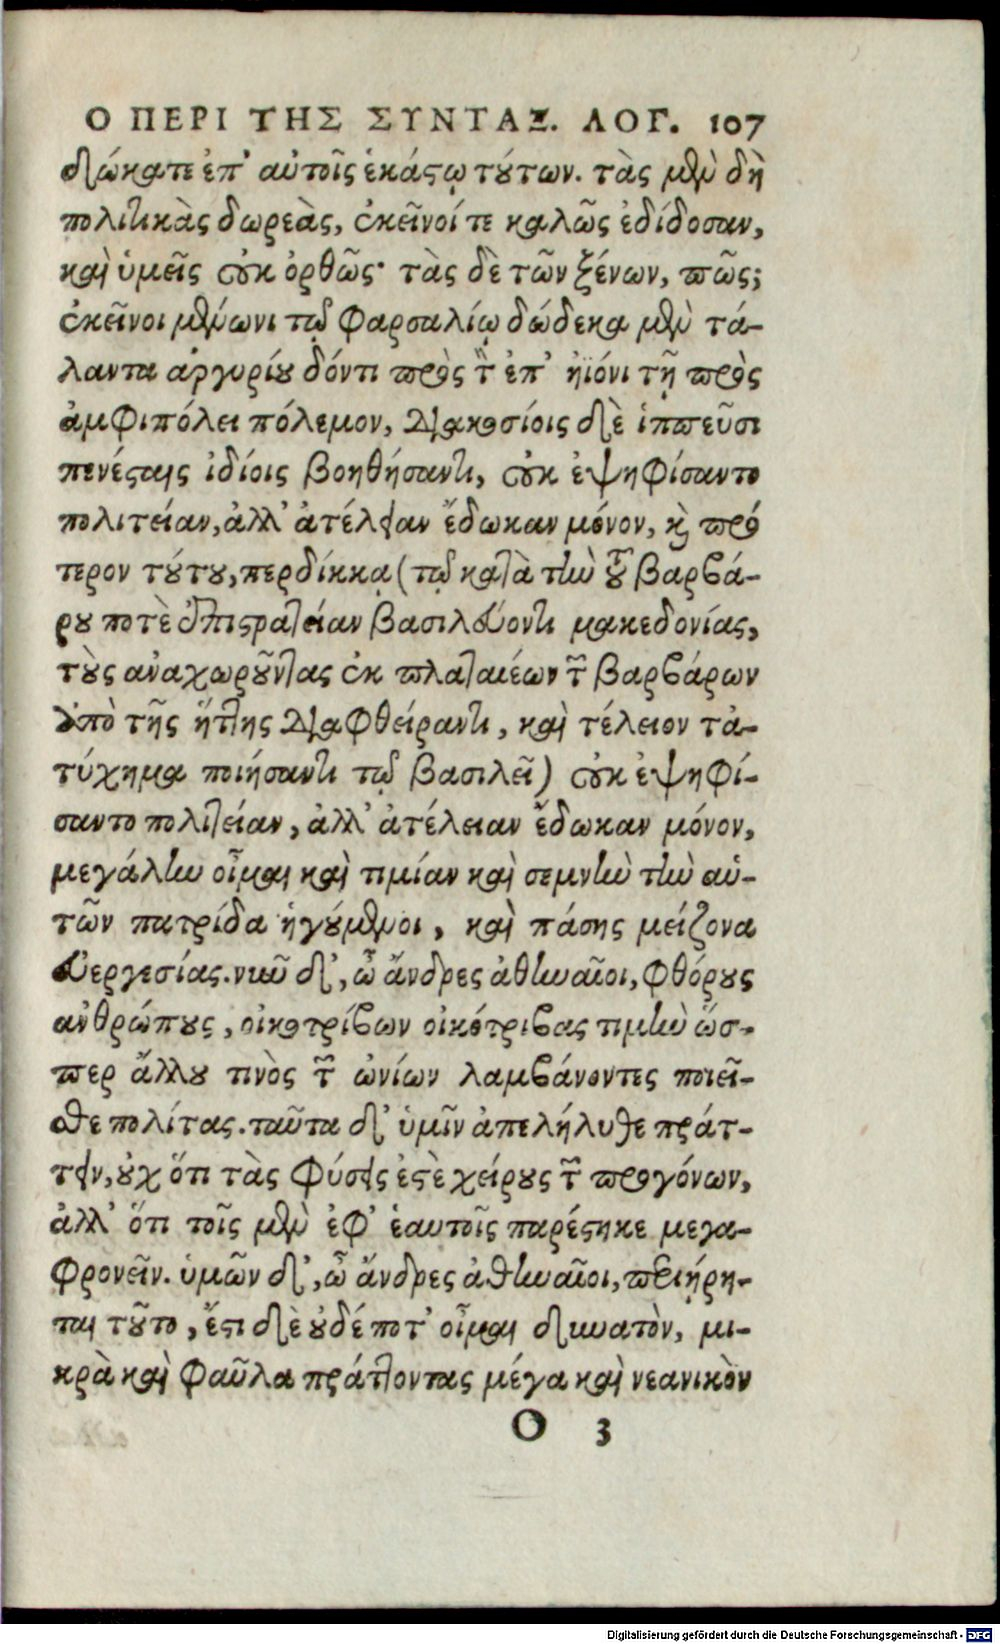 Ο ΠΕΡΙ ΤΗΣ ΣΥΝΤΑΞ. ΛΟΓ. 107
διώκατε ἐπ' αὐτοῖς ἑκάστῳ τούτων. τὰς μὲν δὴ
πολιτικὰς δωρεὰς, ἐκεῖνοί τε καλῶς ἐδίδοσαν,
καὶ ὑμεῖς οὐκ ὀρθῶς· τὰς δὲ τῶν ξένων, πῶς;
ἐκεῖνοι μένωνι τῷ Φαρσαλίῳ δώδεκα μὲν τά-
λαντα ἀργυρίου δόντι πρὸς τὸν ἐπ' ἠϊόνι τῇ πρὸς
ἀμφιπόλει πόλεμον, διακοσίοις δὲ ἱππεῦσι
πενέσταις ἰδίοις βοηθήσαντι, οὐκ ἐψηφίσαντο
πολιτείαν, ἀλλ' ἀτέλειαν ἔδωκαν μόνον, καὶ πρό
τερον τούτου, περδίκκᾳ (τῷ κατὰ τὴν τοῦ βαρβά-
ρου ποτὲ ἐπιστρατείαν βασιλεύοντι μακεδονίας,
τοὺς ἀναχωροῦντας ἐκ πλαταιέων τῶν βαρβάρων
ἀπὸ τῆς ἥττης διαφθείραντι, καὶ τέλειον τἀ-
τύχημα ποιήσαντι τῷ βασιλεῖ) οὐκ ἐψηφί-
σαντο πολιτείαν, ἀλλ' ἀτέλειαν ἔδωκαν μόνον,
μεγάλην οἶμαι καὶ τιμίαν καὶ σεμνὴν τὴν αὑ-
τῶν πατρίδα ἡγούμενοι, καὶ πάσης μείζονα
εὐεργεσίας. νῦν δ', ὦ ἄνδρες ἀθηναῖοι, φθόρους
ἀνθρώπους, οἰκοτρίβων οἰκότριβας τιμὴν ὥσ-
περ ἄλλου τινὸς τῶν ὠνίων λαμβάνοντες ποιεῖ-
σθε πολίτας. ταῦτα δ' ὑμῖν ἀπελήλυθε πράτ-
τειν, οὐχ ὅτι τὰς φύσεις ἐστὲ χείρους τῶν προγόνων,
ἀλλ' ὅτι τοῖς μὲν ἐφ' ἑαυτοῖς παρέστηκε μεγα-
φρονεῖν. ὑμῶν δ', ὦ ἄνδρες ἀθηναῖοι, περιῄρη-
ται τοῦτο, ἔστι δὲ οὐδέ ποτ' οἶμαι δυνατὸν, μι-
κρὰ καὶ φαῦλα πράττοντας μέγα καὶ νεανικὸν
O 3
Digitalisierung gefördert durch die Deutsche Forschungsgemeinschaft - DFG